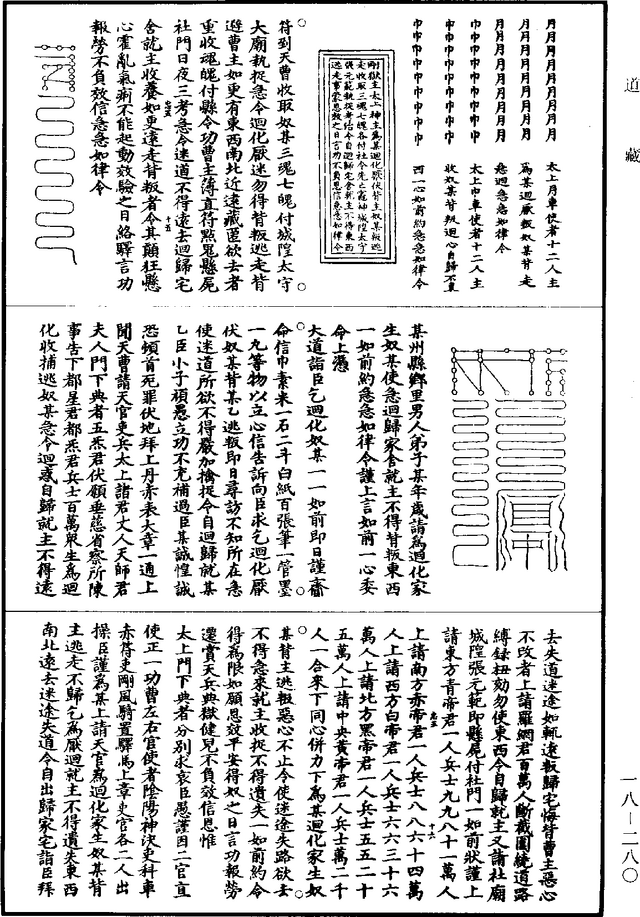 道藏
太上月車使者十二人主
爲某迴厭奴某背走
急迴急急如律令
太上巾車使者十二人主
收奴某背叛迴心自歸不東
西一心如前約急急如律令
符到天曹收取奴某三魂七魄付城隍太守
大廟執捉急令迴化厭迷勿得背叛逃走背
避曹主如更有東西南北近遠藏匿欲去者
重收魂魄付縣令功曹主簿直符點鬼懸屍
社門日夜三考急令迷道不得遠去迴歸宅
舍就主收養如更遠走背叛者令其顛狂懸
心霍亂氣痢不能起動效驗之日絡驛言功
報勞不負效信急急如律令
某州縣鄉里男人弟子某年歲請爲迴化家
生奴某使急迴歸家舍就主不得背叛東西
一如前約急急如律令謹上言如前一心委
命上憑
大道詣臣乞迴化奴某一一如前即日謹齎
命信巾素米一石二斗白紙百張筆一管墨
一丸等物以立心信告訴向臣求乞迴化厭
伏奴某背某乙逃叛即日尋訪不知所在急
使迷道所欲不得嚴加擒捉令自迴歸就某
乙臣小子頑愚立功不充補過臣某誠惶誠
恐頓首死罪伏地拜上丹赤表大章一通上
聞天曹請天官吏兵太上諸君丈人天師君
夫人門下典者五炁君伏願垂慈省察所陳
事告下都星君都炁君兵士百萬衆生爲迴
化收捕逃奴某急令迴惑自歸就主不得遠
去失道迷途如軛遶叛歸宅悔背曹主惡心
不改者上請羅網君百萬人斷截圍繞道路
縛録杻勑勿使東西令自歸就主又請社廟
城隍張元範即懸屍付社門一如前狀謹上
請東方青帝君一人兵士九九八十一萬人
上請南方赤帝君一人兵士八八六十四萬
人上請西方白帝君一人兵士六六三十六
萬人上請北方黑帝君一人兵士五五二十
五萬人上請中央黃帝君一人兵士萬二千
人一合來下同心併力下爲某迴化家生奴
某背主逃叛惡心不止令使迷途失路欲去
不得急來就主收捉不得遺失一如前約令
得爲限如願恩效平安得奴之日言功報勞
遷賞天兵典獄健兒不負效信恩惟
太上門下典者分別求哀臣愚謹因二官直
使正一功曹左右官使者陰陽神決吏科車
赤符吏剛風騎置驛馬上章吏官各二人出
操臣謹爲某上請天官爲迴化家生奴某背
主逃走不歸乞爲厭迴就主不得遺失東西
南北遠去迷途失道令自出歸家宅詣臣拜
一八—二八〇